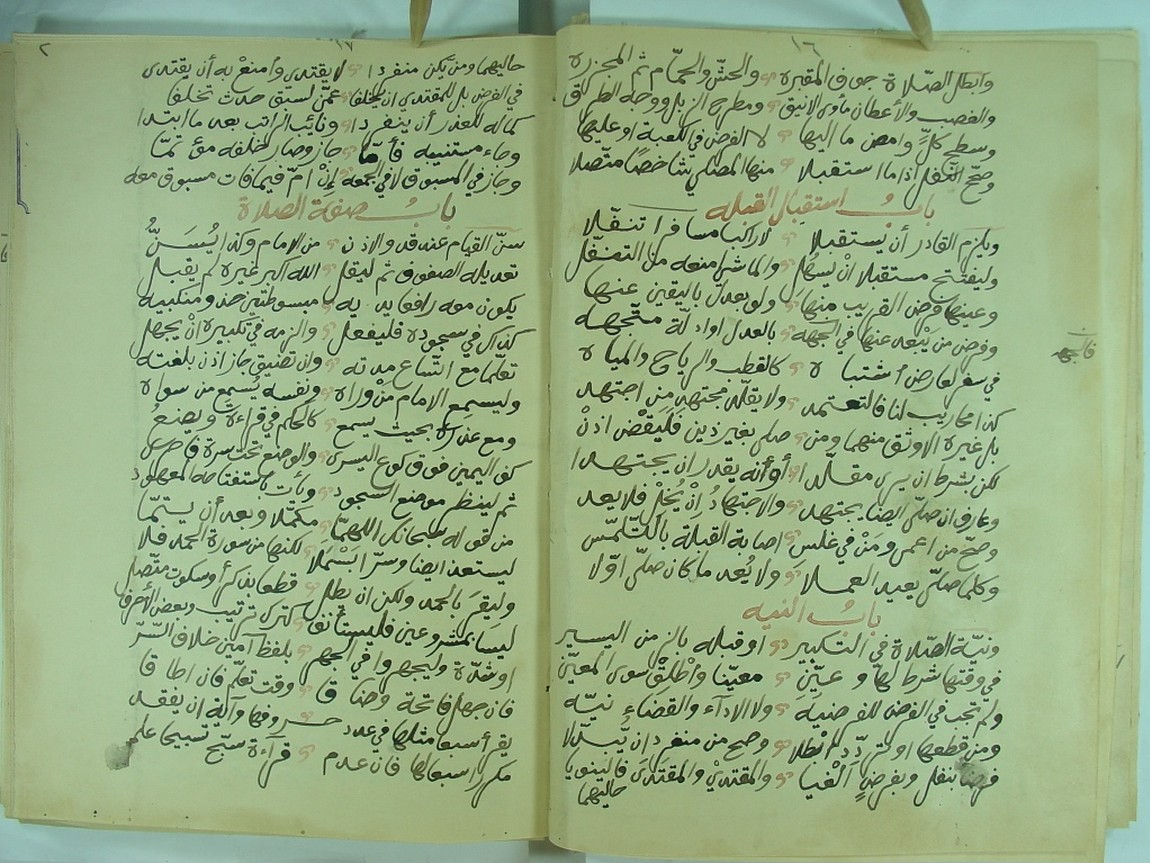 ١٦
وأبطل الصلاة جوف المقبره والحش والحمام ثم المجزره
والغصب والأعطان مأوى الانيق ومطرح الزبل ووجه الطرق
وسطح كل وامض ما اليها لا الفرض في الكعبة او عليها
وصح النفل اذا ما استقبلا منها المصلي شاخصا متصلا
باب استقبال القبله
ويلزم القادر أن يستقبلا لا راكبا مسافرا تنفلا
وليفتتح مستقبلا ان يسهل والماشي امنعه من التنفل
وعينها فرض القريب منها ولو بعدل باليقين عنها
وفرض من يبعد عنها في الجهه بالعدل او ادلة متجهه
فالجهه
في سفر لعارض أشتباه كالقطب والرياح والمياه
كذا محاريب لنا فالتعتمد ولا يقلد مجتهد من اجتهد
بل غيره الاوثق منهما ومن صلى بغير ذين فليقض اذن
لكن بشرط ان يرى مقلدا أو أنه يقدر ان يجتهدا
وعارف ان صلى ايضا يجتهد والاجتهاد ان يخل فلا يعد
وصح من اعمى ومن في غلس اصابة القبلة بالتلمس
وكلما صلى يعيد العملا ولا يعد ما كان صلى اولا
باب النيه
ونية الصلاة في التكبير او قبله بالزمن اليسير
في وقتها شرط لها وعين معينا وأطلق سوى المعين
ولم تجب في الفرض للفرضيه ولا الاداء والقضاء نيه
ومن قطعها او تردد ابطلا وصح من منفرد ان يبدلا
فرضا بنفل وبفرض ألغيا والمقتدي والمقتدى فالينويا
حاليهما
حاليهما ومن يكن منفردا لا يقتدي وأمنع به أن يقتدى
في الفرض بل للمقتدي ان يخلفا عمن لسبق حدث تخلفا
كما له للعذر أن ينفردا ونائب الراتب بعد ما ابتدا
وجاء مستنيبه فأما جاز وصار خلفه مؤتما
وجاز في المسبوق لا في الجمعه إن أم فيما فات مسبوق معه
باب صفة الصلاة
سن القيام عند قد والاذن من الامام وكذا يسن
تعديله الصفوف ثم ليقل الله اكبر غيره لم يقبل
يكون معه رافعا يديه مبسوطتين حذو منكبيه
كذاك في سجوده فليفعل والزمه في تكبيره ان يجهل
تعلما مع اتساع مدته وان تضيق جاز اذن بلغته
وليسمع الامام من وراه ونفسه يسمع من سواه
ومع عذره بحيث يسمع كالحكم في قراءة ويضع
كف اليمين فوق كوع اليسرى والوضع تحت سرة فاحرى
ثم لينظر موضع السجود ويأت باستفتاحه المعهود
من قوله سبحانك اللهما مكملا وبعد أن يستتما
ليستعذ ايضا وسرا بسملا لكنها من سورة الحمد فلا
وليقرء بالحمد ولكن ان يطل قطعا بذكر أو سكوت متصل
ليسا بمشروعين فليستأنف كترك ترتيب وبعض الأحرف
او شدة وليجهروا في الجهر بلفظ آمين خلاف السر
فان جهل فاتحة وضاقا وقت تعلم فان اطاقا
يقرأ سبعا مثلها في عدد حروفها وآية ان يفقد
مكررا سبعا لها فان عدم قراءة سبح تسبيحا علم